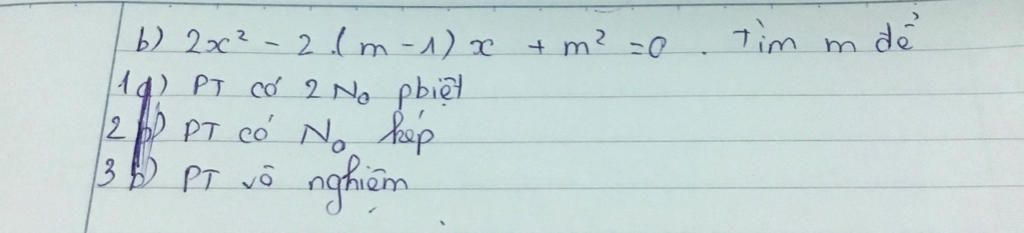 b) 2x² - 2.(m-1)x + m² = 0. Tìm m để
1) PT có 2 No pbiệt
2) PT có No kép
3) PT vô nghiệm